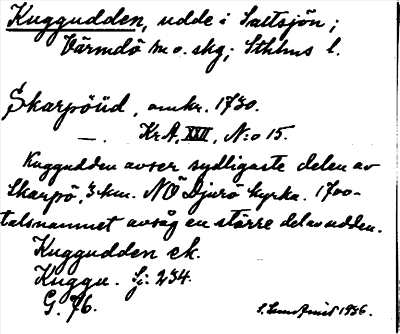 Kuggudden, udde i Saltsjön;
Värmdö sn o. skg; Sthlms l.
Skarpöüd, omkr. 1730.
—. Kr.A, XXII, N:o 15.
Kuggudden avser sydligaste delen av
Skarpö, 3 km. NÖ Djurö kyrka. 1700-
talsnamnet avsåg en större del av udden.
Kuggudden ek.
Kuggu. Sj: 234.
G. 76.
1936.